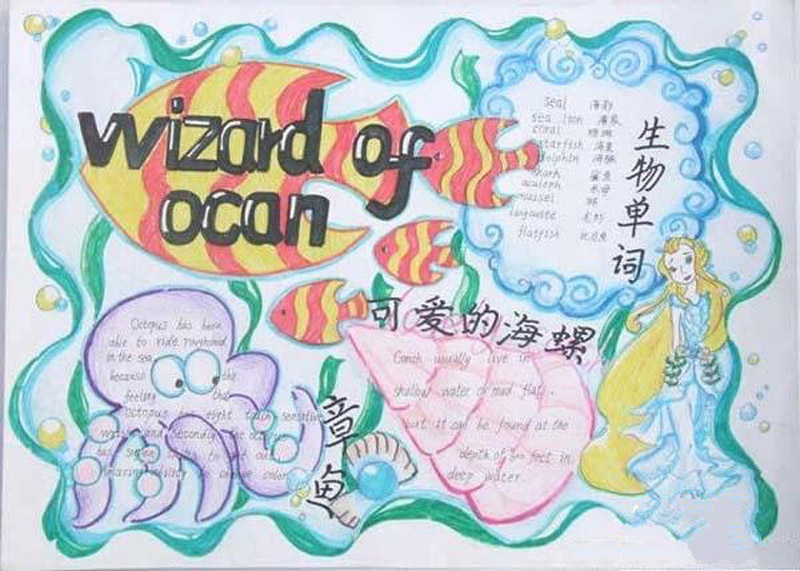 wizard of
ocan
seal 海豹
sea lion 海象
coral 珊瑚
starfish 海星
dolphin 海豚
shark 鲨鱼
acaleph 水母
mussel
languste 龙虾
flatfish 比目鱼
生物单词
可爱的海螺
Conch usually live in
shallow water or mud flat,
but it can be found at the
depth of 500 feet in
deep water.
Octopus has been
able to ride roughshod
in the sea
because the
feeling that
Octopus has eight touch sensitive
and secondly the octopus
has
amazing ability to change color
章鱼